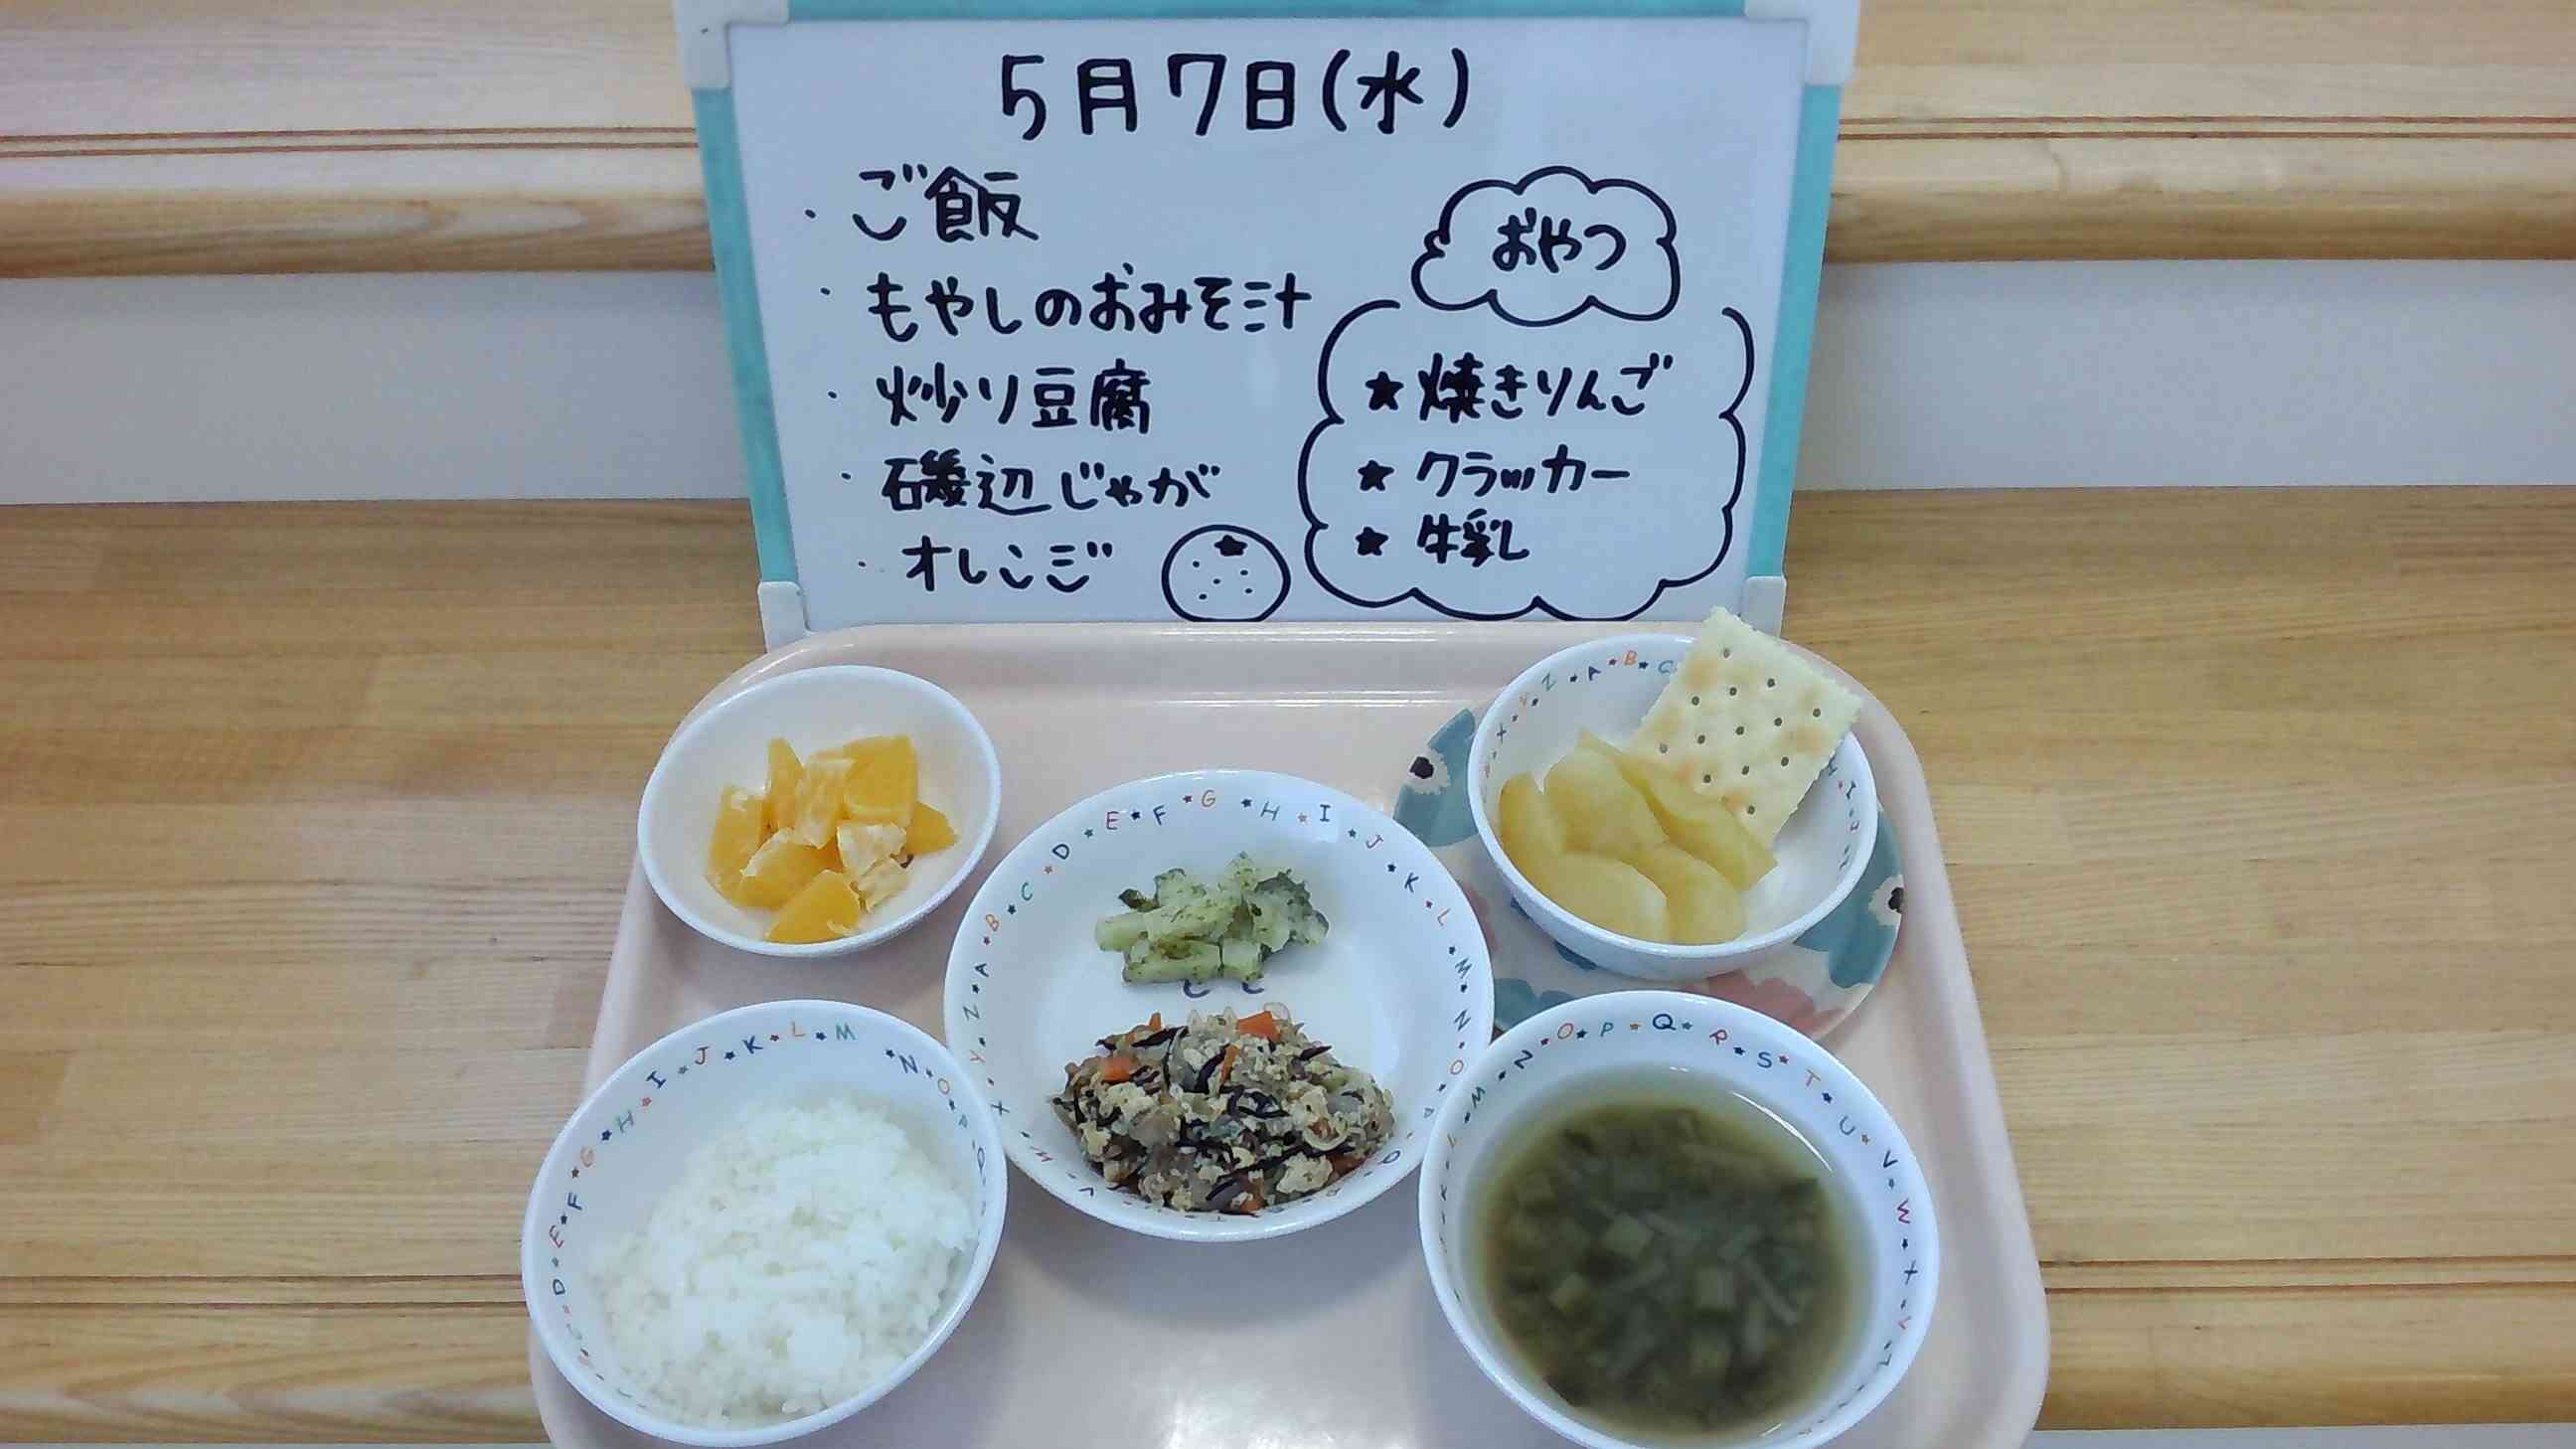 5月7日(水)
・ご飯
・もやしのおみそ汁
・炒り豆腐
・磯辺じゃが
・オレンジ
おやつ
★焼きりんご
★クラッカー
★牛乳
X Y Z A B C
C D E F G H I J K L M N O P
D E F G H I J K L M N O P Q
M N O P Q R S T U V W X Y Z